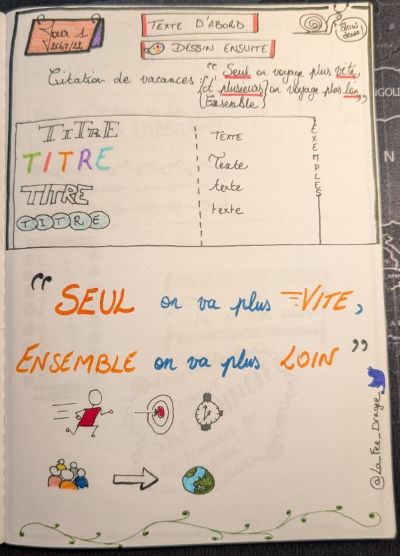 Jour 1
TEXTE D'ABORD
DESSIN ENSUITE
SLOW down
Citation de vacances : " Seul on voyage plus vite,
{à plusieurs} on voyage plus loin "
{Ensemble}
TITRE
TITRE
TITRE
TITRE
TEXTE
Texte
texte
texte
EXEMPLES
" SEUL on va plus VITE,
ENSEMBLE on va plus LOIN "
@La_Fee_Dragee_